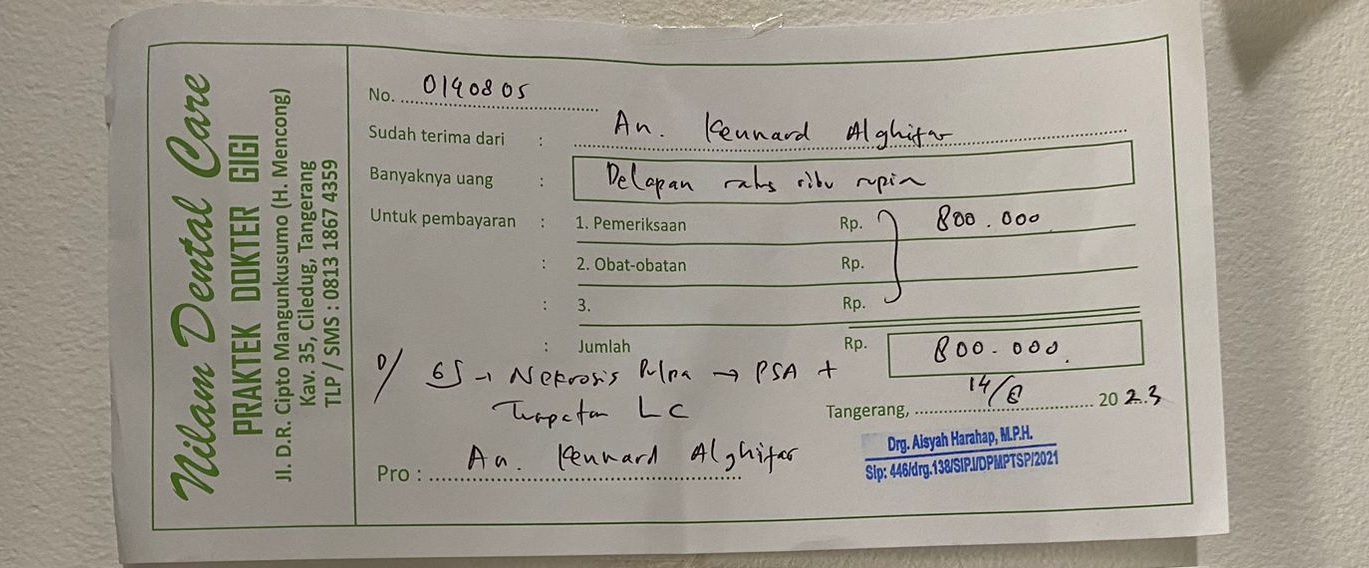 Nilam Dental Care
PRAKTEK DOKTER GIGI
Jl. D.R. Cipto Mangunkusumo (H. Mencong)
Kav. 35, Ciledug, Tangerang
TLP / SMS : 0813 1867 4359
No. 0140805
Sudah terima dari : An. Kennard Alghifar
Banyaknya uang : Delapan ratus ribu rupia
Untuk pembayaran : 1. Pemeriksaan Rp. 800.000
: 2. Obat-obatan Rp.
: 3. Rp.
: Jumlah Rp. 800.000
D/ 65 → Nekrosis Pulpa → PSA +
LC
Tangerang, 14/8 2023
Drg. Aisyah Harahap, M.P.H.
Sip: 446/drg.138/SIP.I/DPMPTSP/2021
Pro : An. Kennard Alghifar